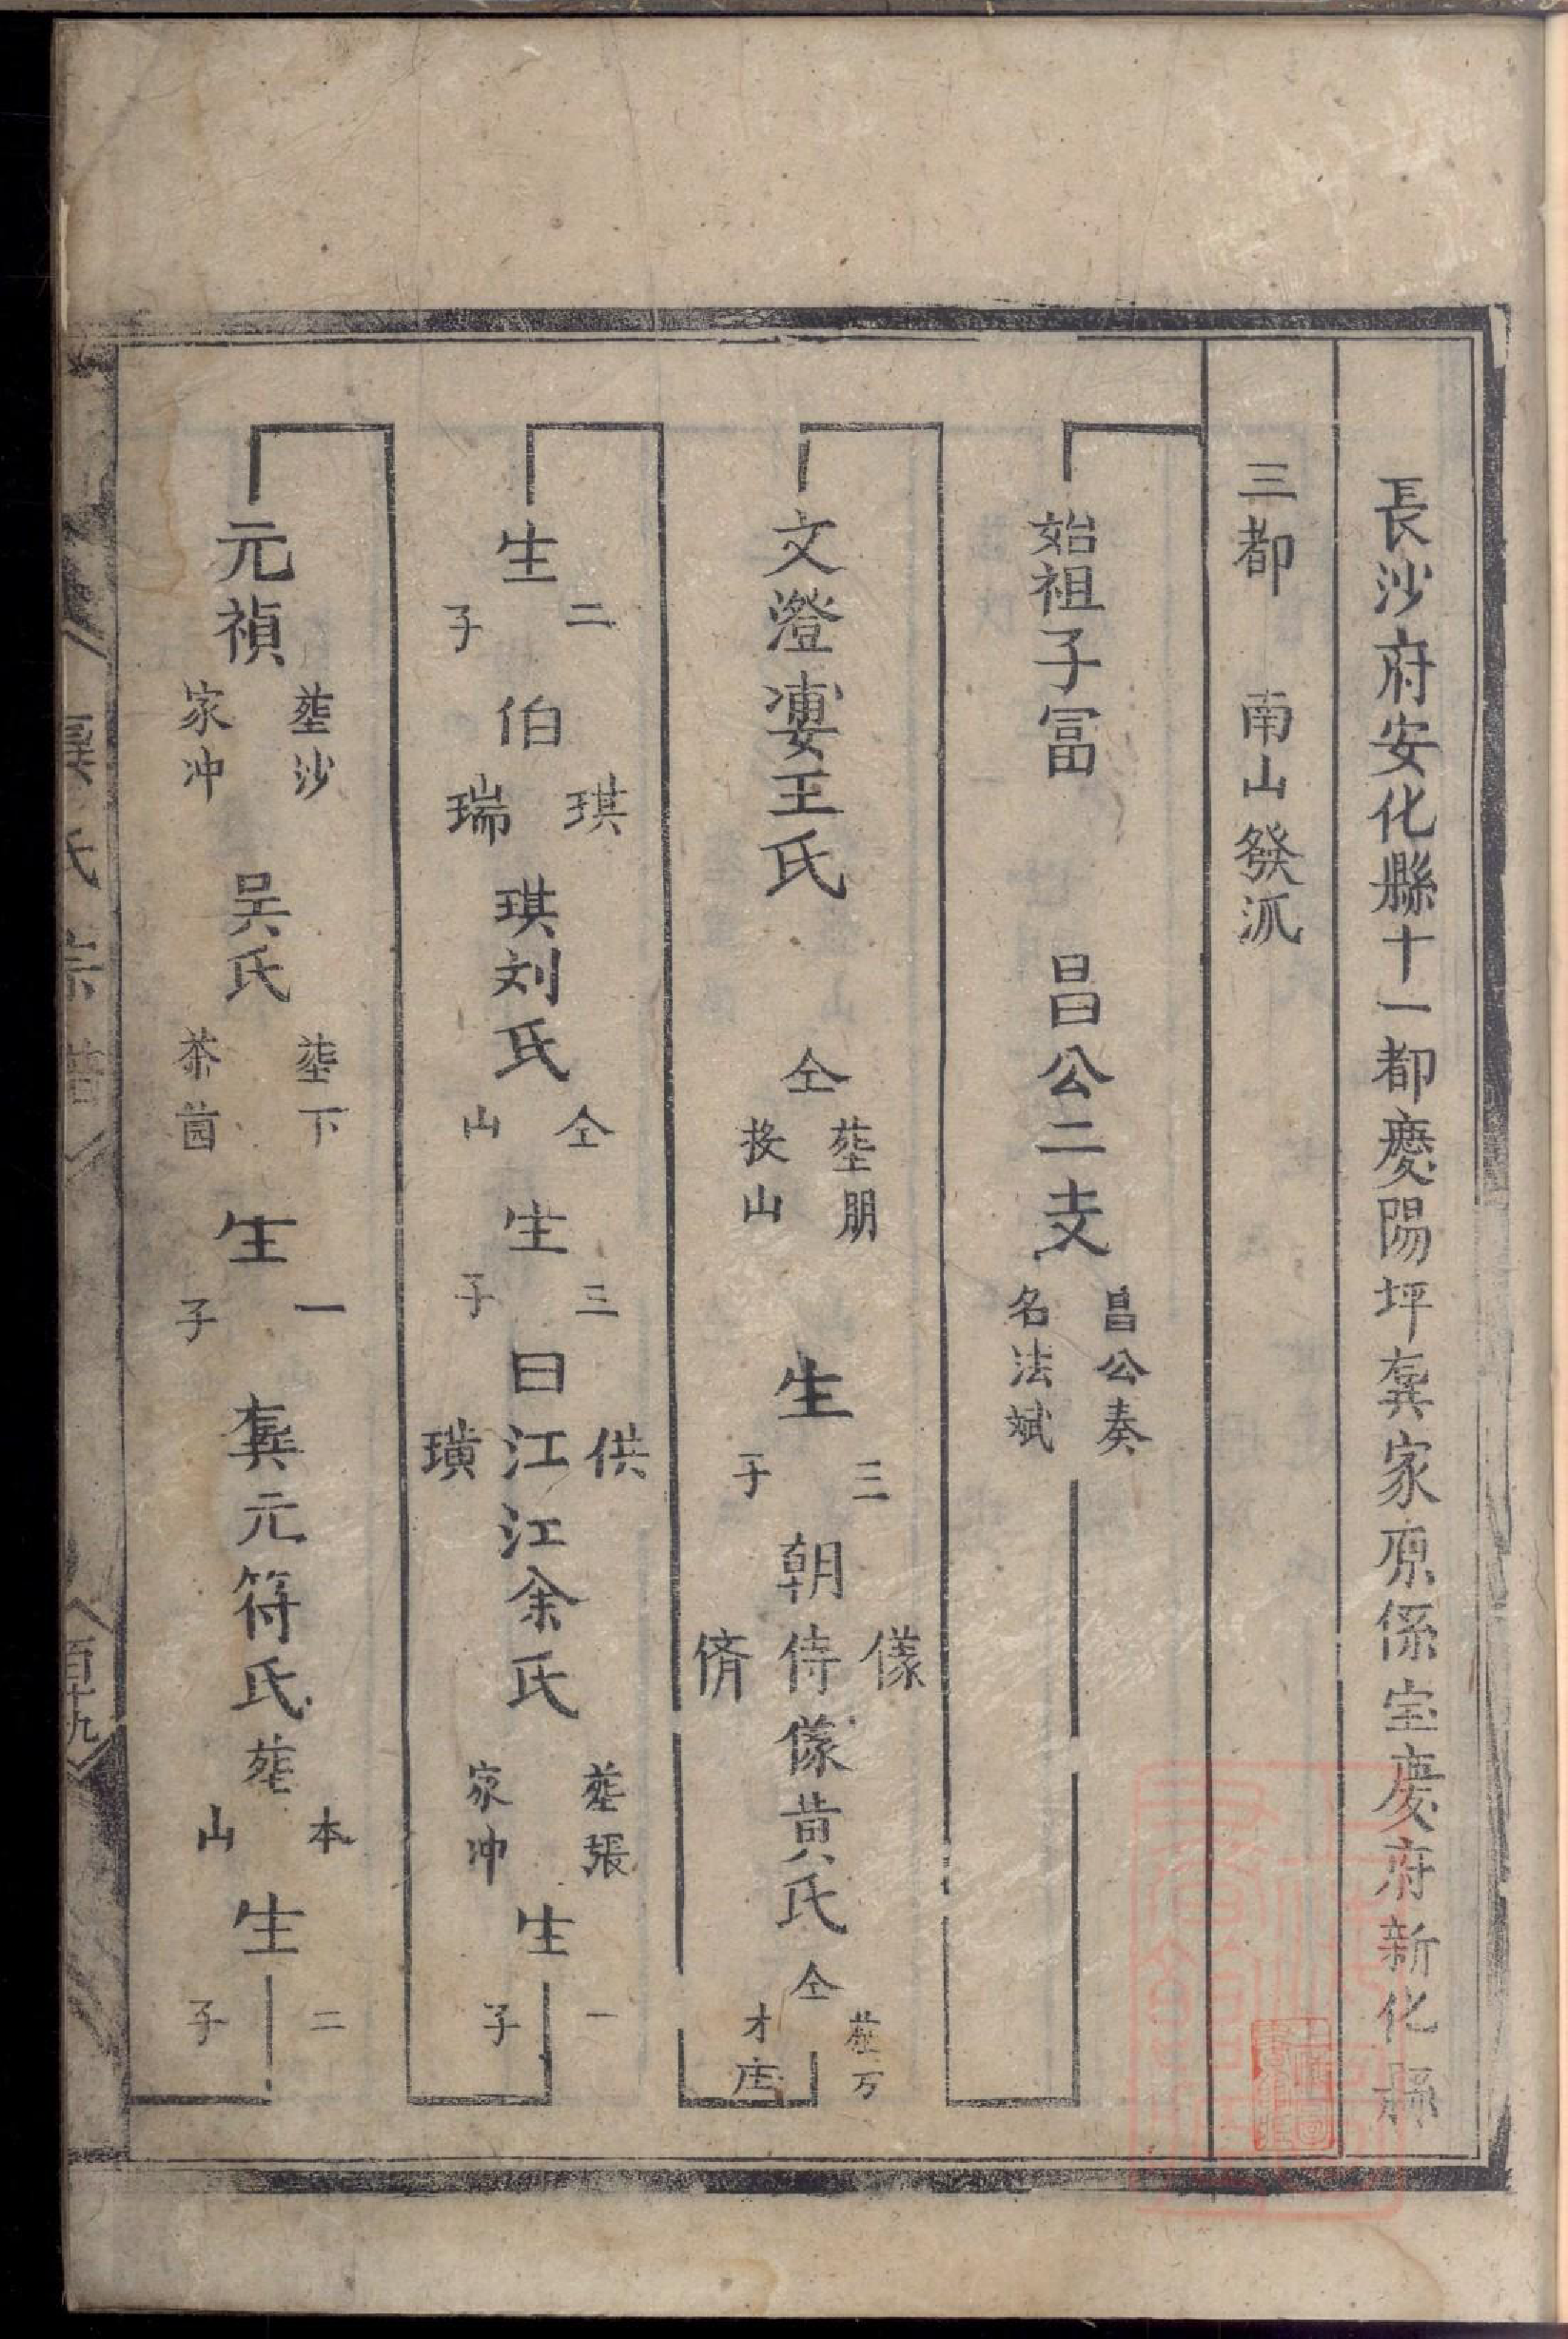 長沙府安化縣十一都慶陽坪龔家原係宝慶府新化縣
三都 南山發派
始祖子冨 昌公二支 昌公奏名法斌
文澄妻王氏 仝塟朋 山 生三子 朝侍 儯 侪 黄氏 仝塟万才庄
生二子 伯 琪 瑞 琪刘氏 仝山 生三子 曰江 供 璜 江余氏 塟張家冲 生一子
元禎 塟沙家冲 吴氏 塟下茶茵 生一子 龔元符氏 塟本山 生二子
龔氏宗譜
百九